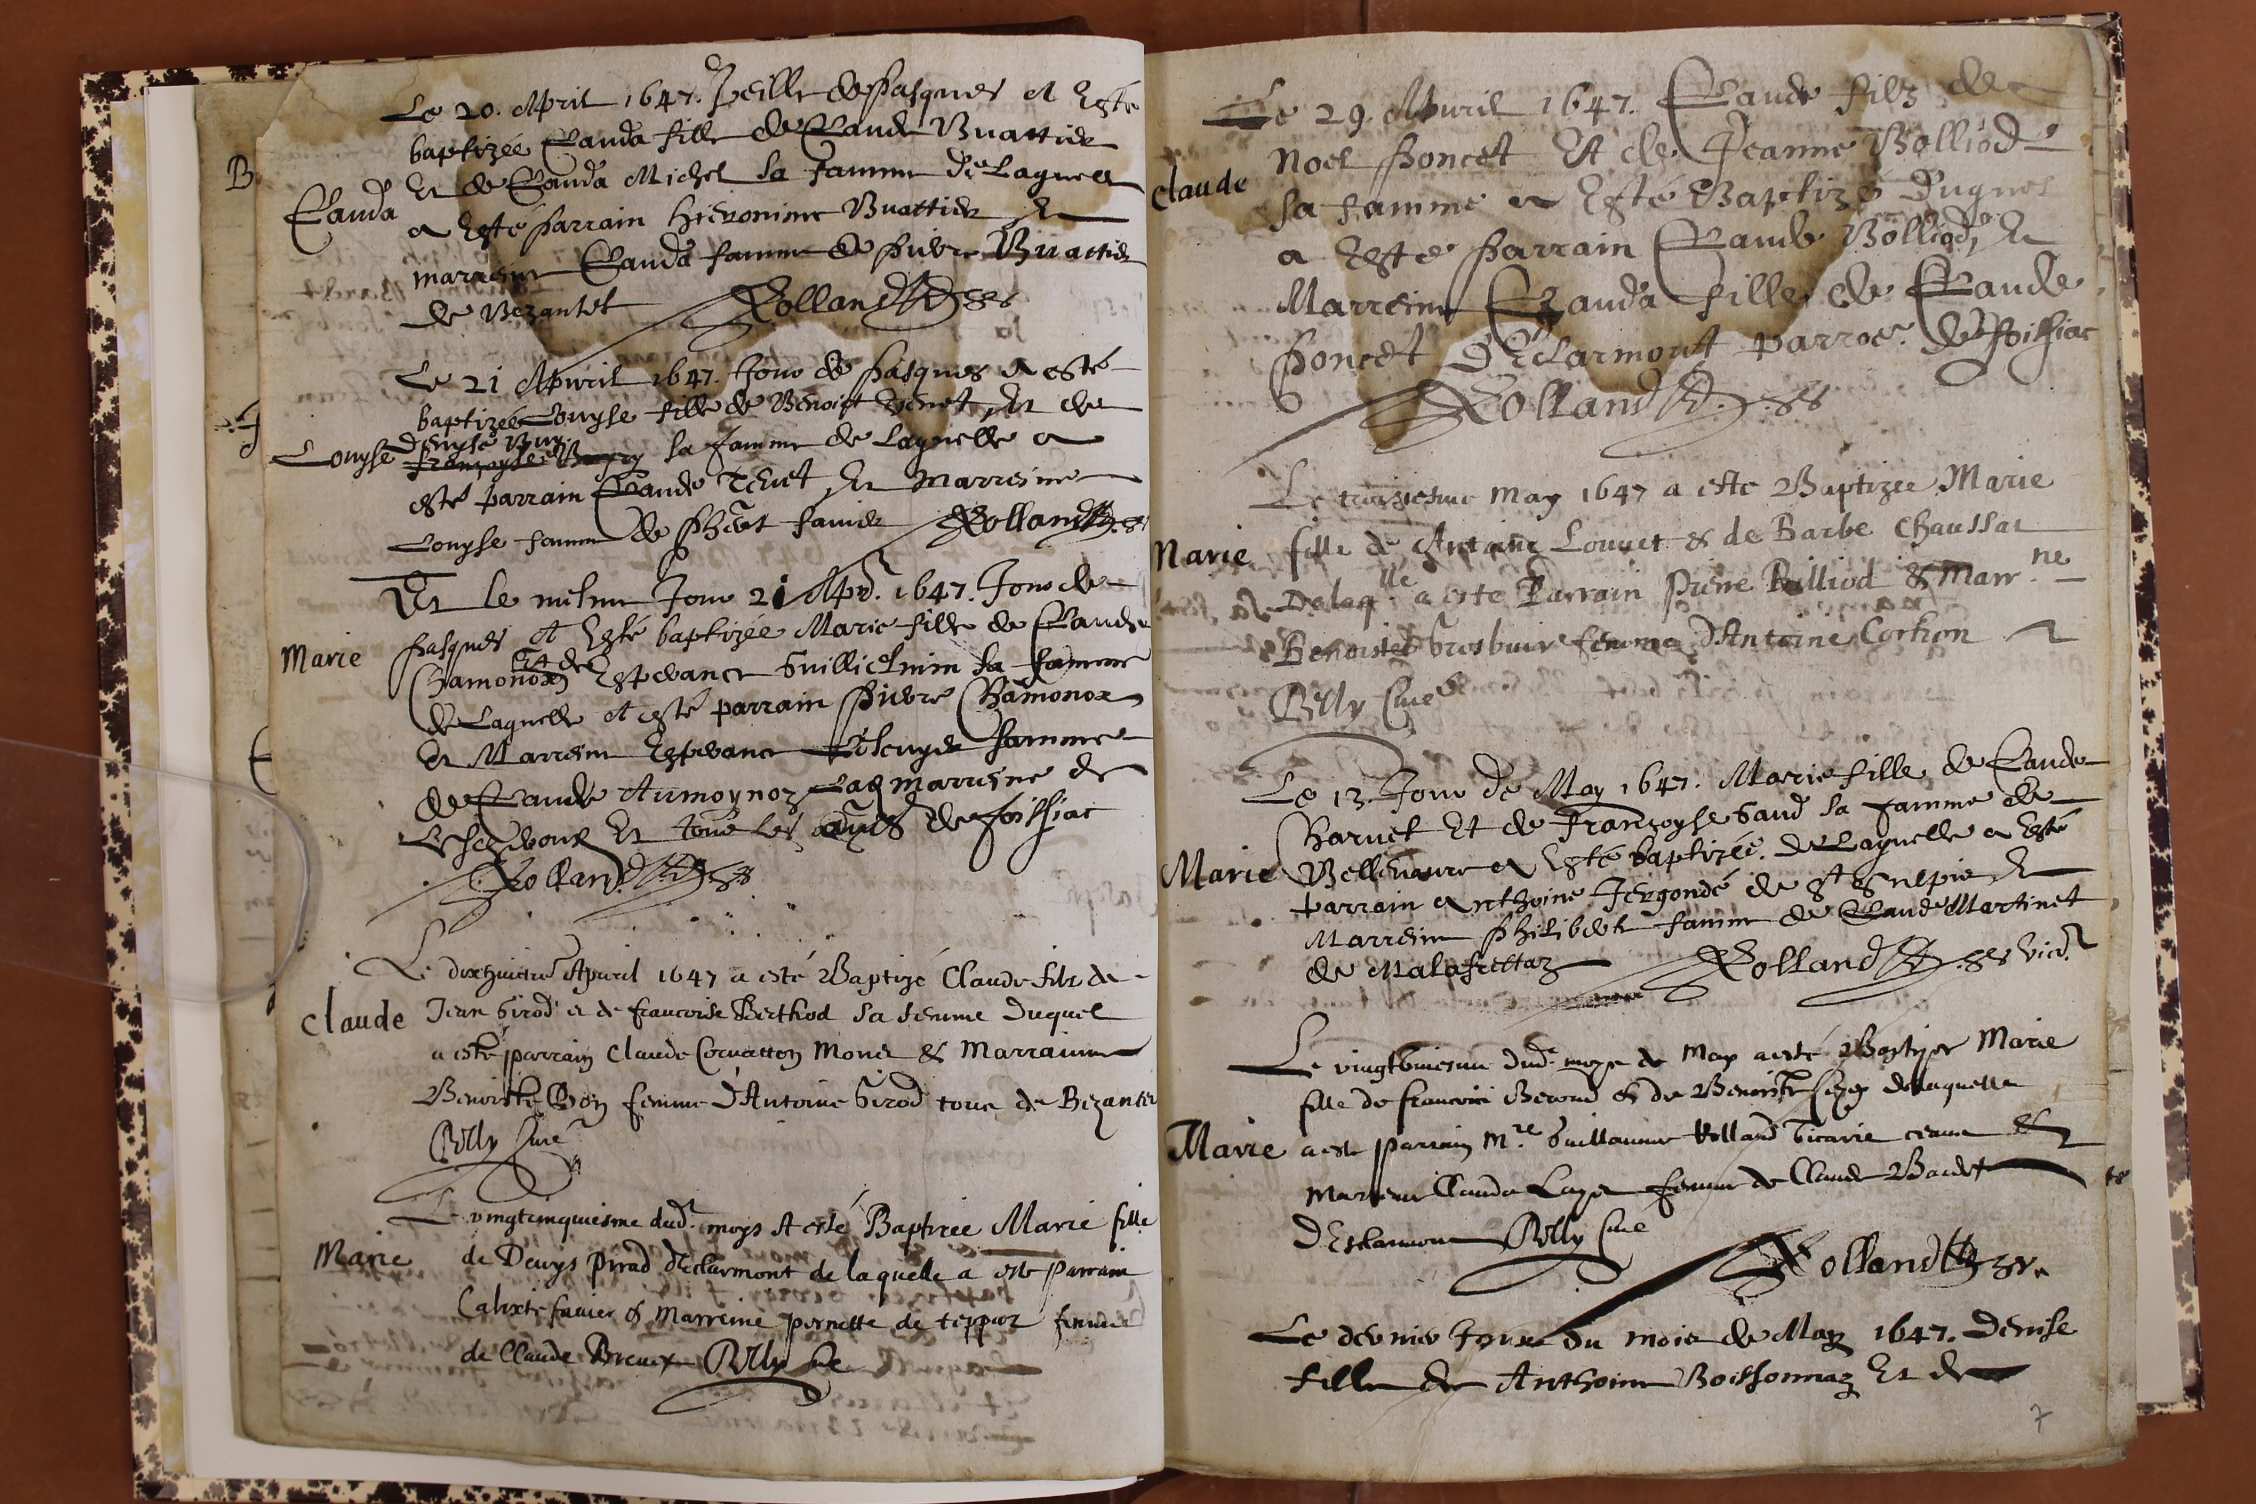 B
Le 20. April 1647. Veille de Pasques at Esté
baptizée Clauda fille de Claude Buattier
Clauda
Et de Clauda Michel sa famme de Laquelle
a Esté Parrain Hieronime Buattier Et
marreine Clauda famme de Pierre Buattier
de Bezantet Rolland
Le 21 Apuril 1647. Jour de Pasques a esté
baptizée Louyse fille de Benoist Tenet, Et de
Louyse
Denyse Buy
sa famme de Laquelle a
esté parrain Claude Tenet Et Marreine
Louyse famme de Favier Rolland
Et le mesme Jour 21 Apr. 1647. Jour de
Marie
Pasques at Esté baptizée Marie fille de Claude
Chamonox Et de Estevance Guillielmin sa famme
de Laquelle at esté parrain Pierre Chamonox
Et Marreine Estevance famme
de Claude Aumoynoz Lad marreine de
Et tous les de Joissiac
Rolland
Le dixhuictie Apuril 1647 a esté Baptizé Claude filz de
Claude
Jean Girod et de francoise Berthod sa femme Duquel
a esté parrain Claude Corvatton & Marraine
Benoiste Bon femme d'Antoine Girod tous de Bezantet
Rilly Cure
Le vingtcinquiesme dud. moys At esté Baptizee Marie fille
Marie
de Denys Prad d'Eclarmont de laquelle a este parrain
Calixte favier & Marreine pernette de teppoz femme
de Claude Breuet Rilly Cure
Le 29. Apuril 1647. Claude filz de
Noel Poncet Et de Jeanne Bolliod
Claude
sa famme a Esté Baptizé Duquel
a Esté Parrain Claude Bolliod, Et
Marreine Clauda fille de Claude
Poncet d'Eclarmont parroe. de Joissiac
Rolland
Le troisiesme May 1647 a este Baptizee Marie
Marie
fille de Antoine Louuet & de Barbe Chaussat
De laqlle a este Parrain Pierre Bolliod & Marrne
Benoiste Grosbuis femme d'Antoine Corton
Rilly Cure
Le 13. Jour de May 1647. Marie fille de Claude
Baruet Et de Franzoyse Gaud sa famme de
Marie
Belleuavre a Esté baptizée. de Laquelle a Esté
parrain Anthoine Jergondé de St Sulpis Et
Marreine Philiberte famme de Claude Martinet
de Malafrettaz Rolland Vicr.
Le vingthuiesme dud. moys de May a esté Baptizee Marie
fille de francois Beroud & de Benoiste de laquelle
Marie
a este parrain Mre Guillaume Rolland &
Marreine Clauda Laye femme de Claude Baudet
D'Esclarmont Rilly Cure
Rolland
Le dernier Jour du mois de May 1647. Denise
fille de Anthoine Boissonnaz Et de
7